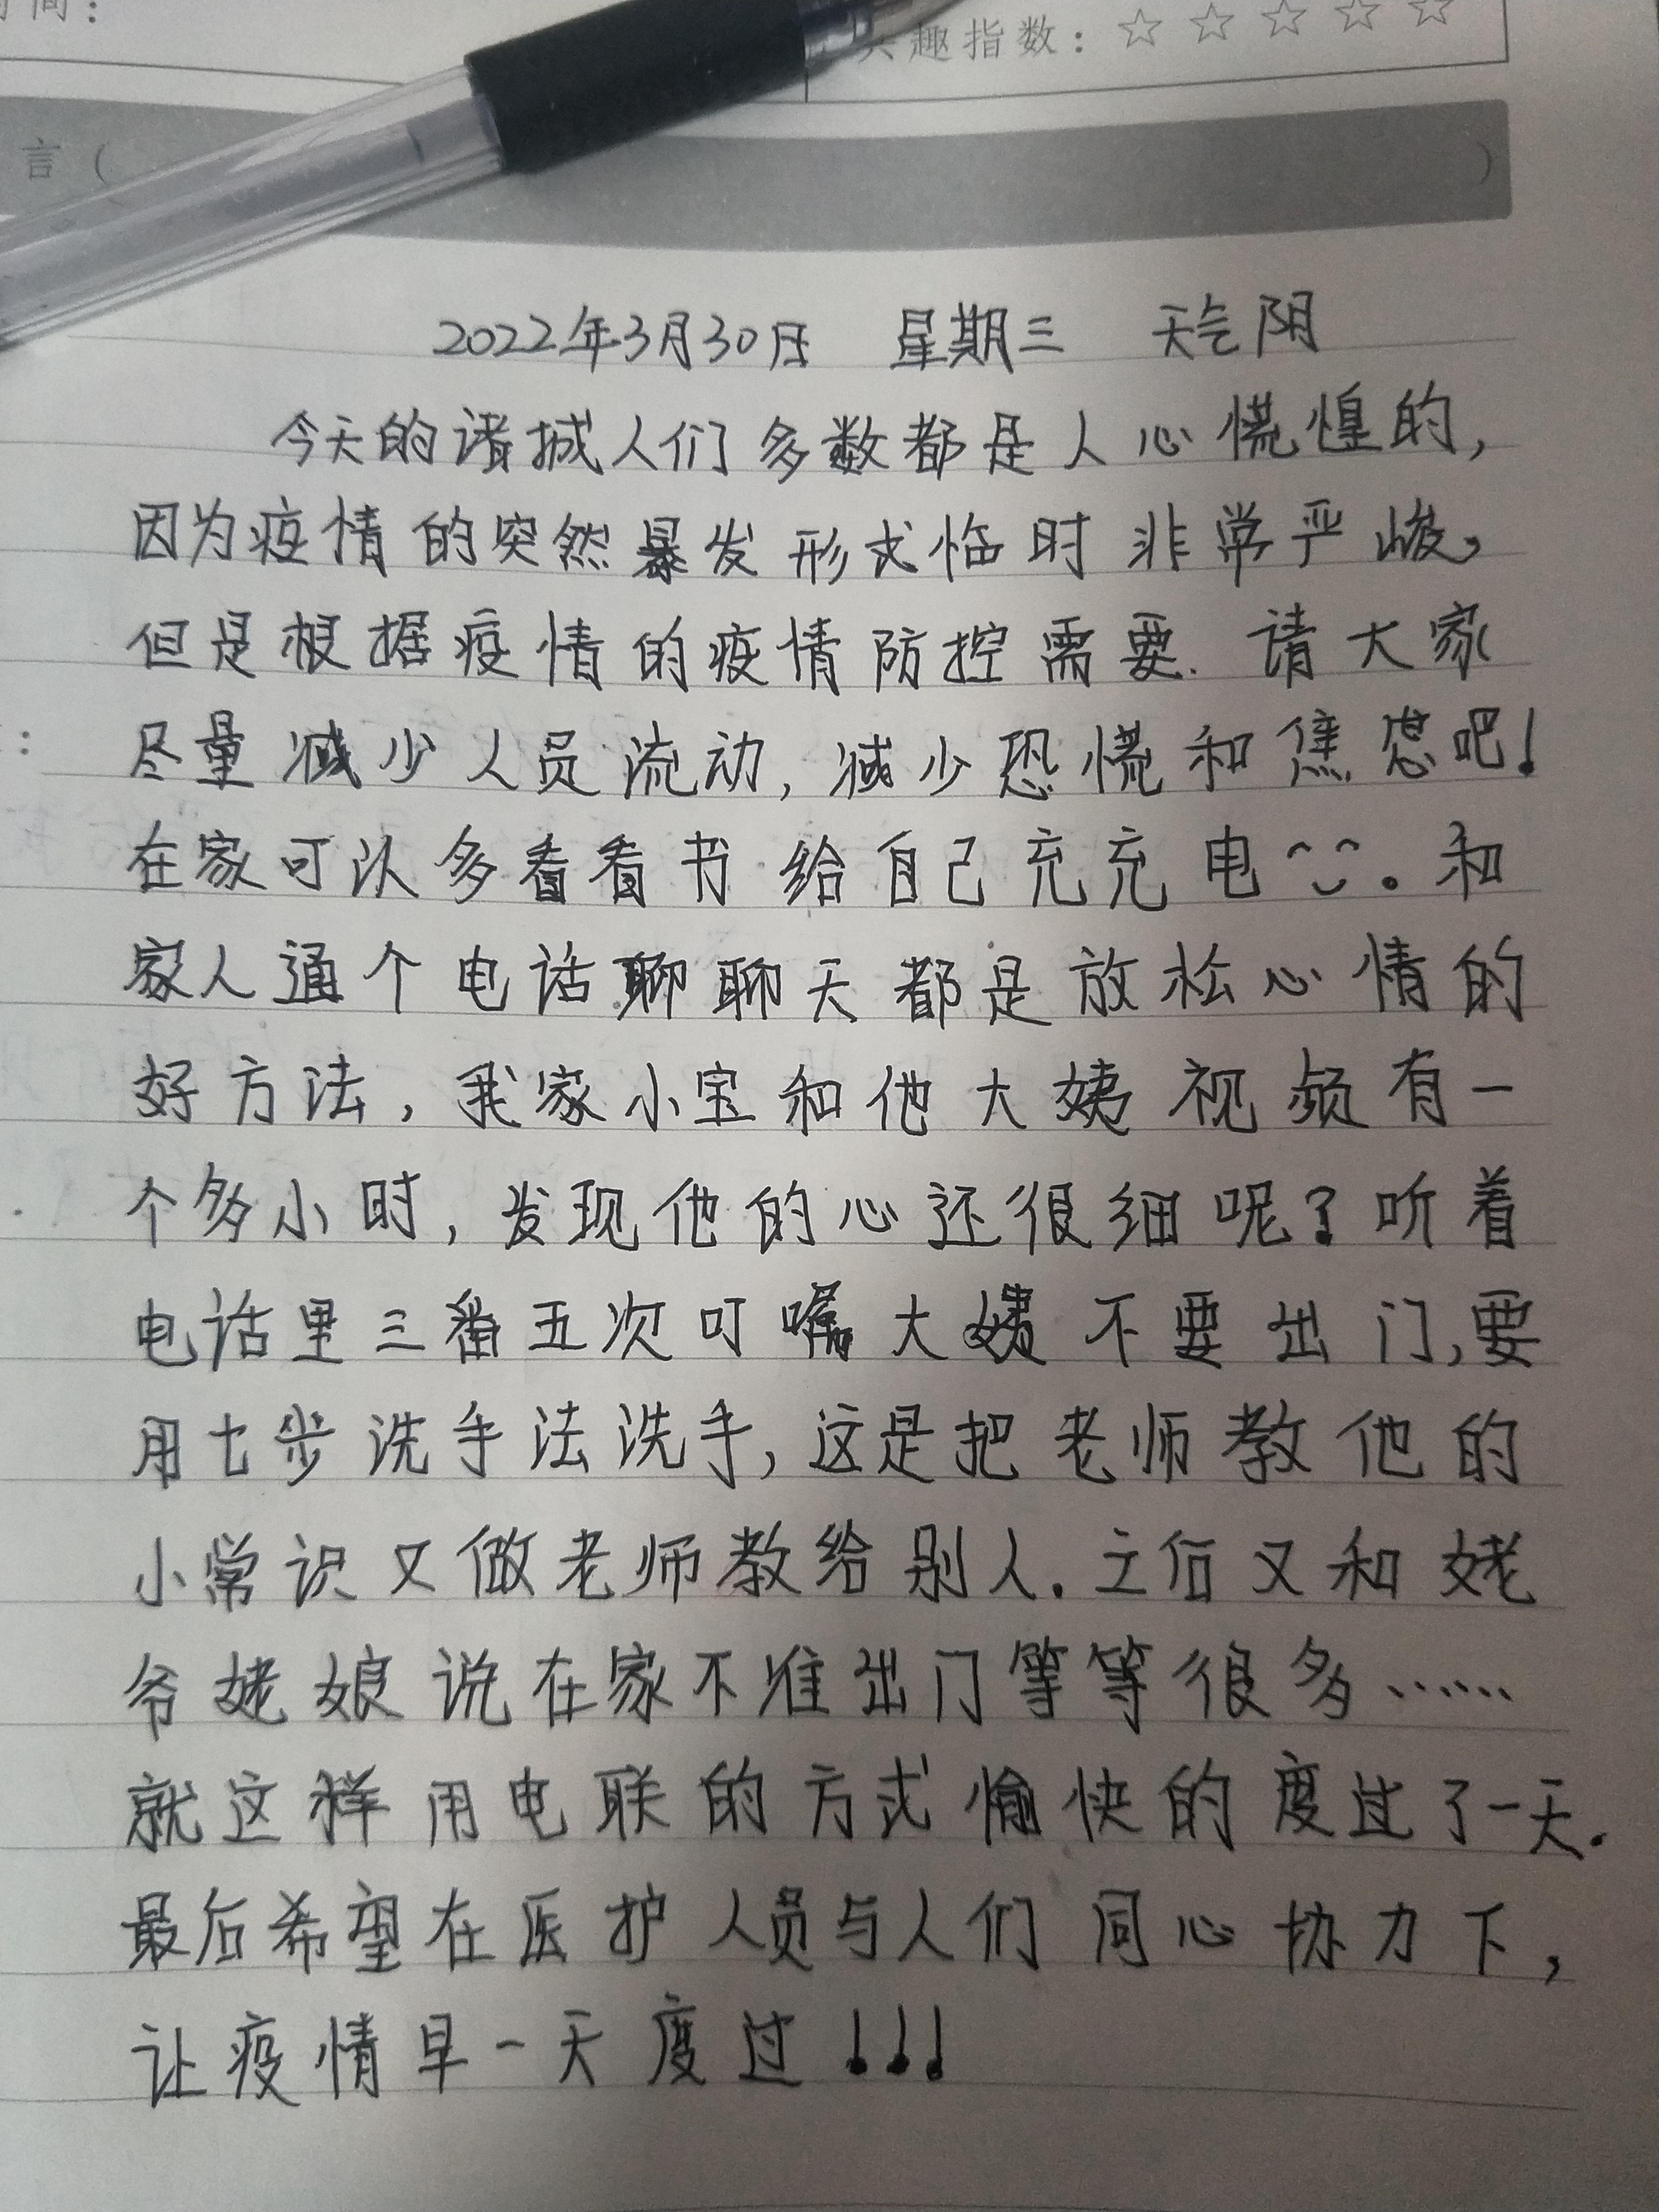 间：
兴趣指数：☆ ☆ ☆ ☆ ☆
言（ ）
2022年3月30日 星期三 天气阴
今天的诸城人们多数都是人心慌惶的，
因为疫情的突然暴发形式临时非常严峻，
但是根据疫情的疫情防控需要.请大家
尽量减少人员流动，减少恐慌和焦虑吧！
：
在家可以多看看书给自己充充电。和
家人通个电话聊聊天都是放松心情的
好方法，我家小宝和他大姨视频有一
个多小时，发现他的心还很细呢？听着
电话里三番五次叮嘱大姨不要出门，要
用七步洗手法洗手，这是把老师教他的
小常识又做老师教给别人.之后又和姥
爷姥娘说在家不准出门等等很多……
就这样用电联的方式愉快的度过了一天.
最后希望在医护人员与人们同心协力下，
让疫情早一天度过！！！